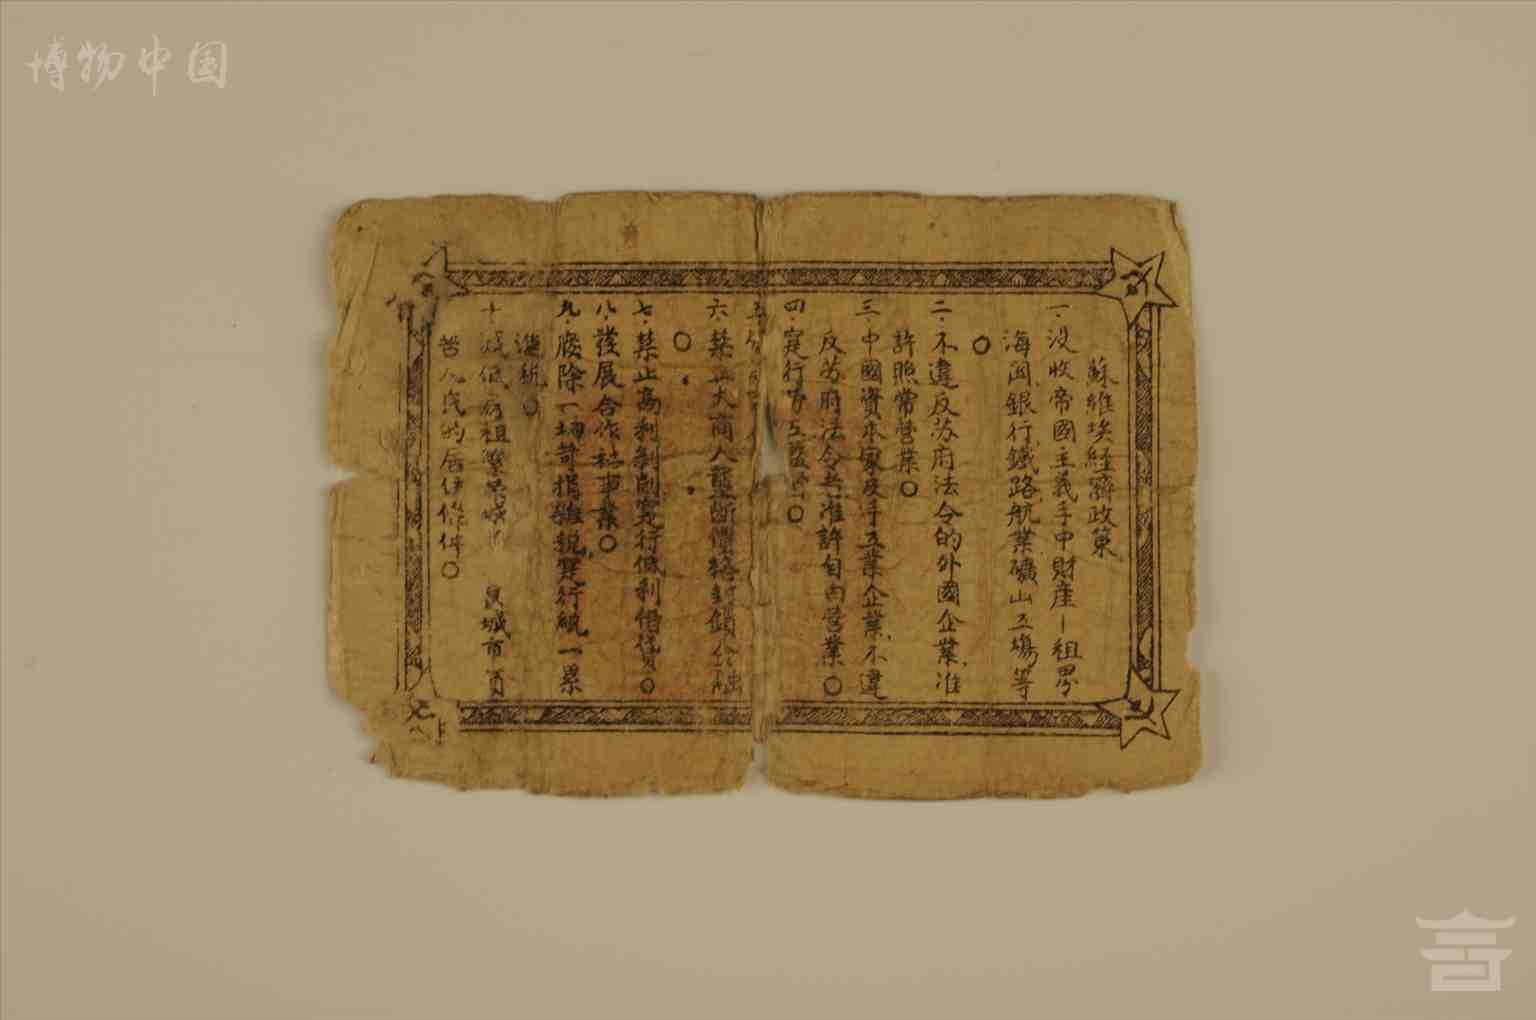 博物中国
蘇維埃経濟政策
一．没收帝國主義手中財產—租界
海関、銀行、鐵路、航業、礦山工塲等
〇
二．不違反苏府法令的外國企業、准
許照常营業〇
三．中國資本家及手工業企業、不違
反苏府法令者准許自由营業〇
四．寔行
五．
六．禁止大商人壟断價格封鎖金融
〇
七．禁止高利剝削寔行低利借貸〇
八．發展合作社事業〇
九．廢除一切苛捐雜税、寔行統一累
進税〇
十．減低房租 良城市貧
苦人民的居住條件〇